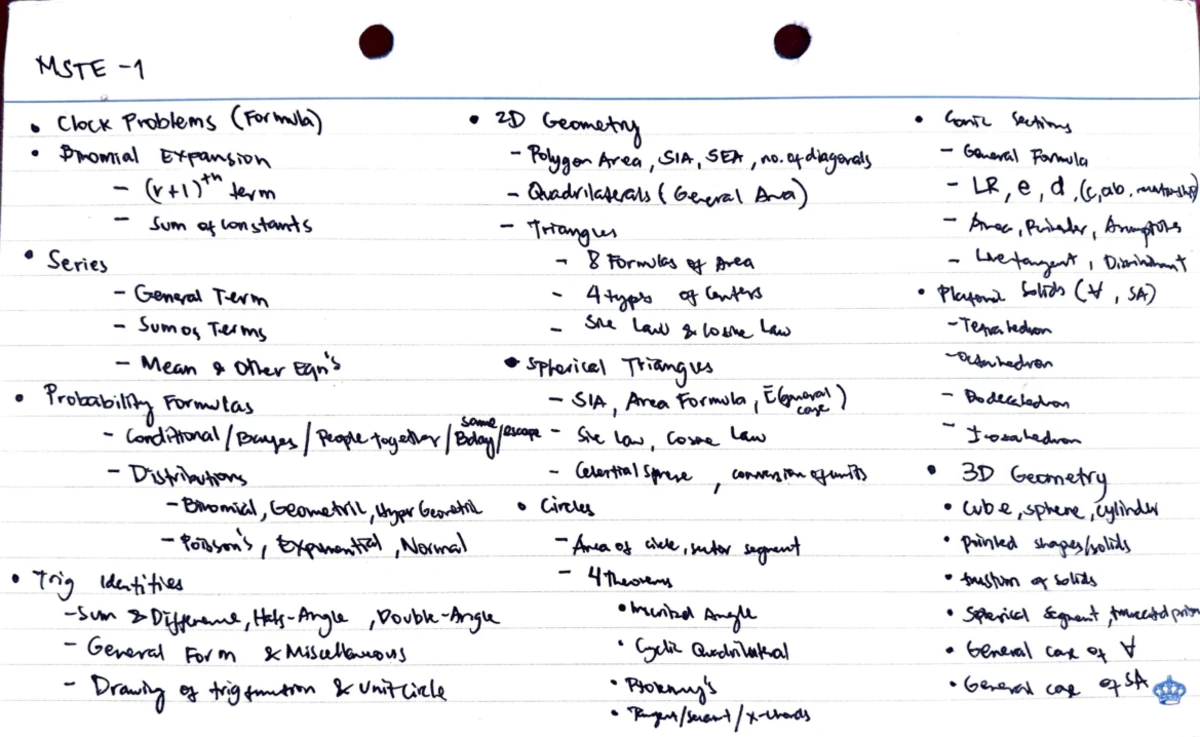 MSTE -1
• Clock Problems (Formula)
• Binomial Expansion
- (r+1)th term
- Sum of constants
• Series
- General Term
- Sum of Terms
- Mean & Other Eqn's
• Probability Formulas
- Conditional/Bayes/People together/same Bday/escape
- Distributions
- Binomial, Geometric, Hyper Geometric
- Poisson's, Exponential, Normal
• Trig Identities
- Sum & Difference, Half-Angle, Double-Angle
- General Form & Miscellaneous
- Drawing of trig function & Unit Circle
• 2D Geometry
- Polygon Area, SIA, SEA, no. of diagonals
- Quadrilaterals (General Area)
- Triangles
- 8 Formulas of Area
- 4 types of Centers
- Sine Law & Cosine Law
• Spherical Triangles
- SIA, Area Formula, E (general case)
- Sine Law, Cosine Law
- Celestial Sphere, conversion of units
• Circles
- Area of circle, sector segment
- 4 Theorems
• Inscribed Angle
• Cyclic Quadrilateral
• Ptolemy's
• Tangent/secant/x-chords
• Conic Sections
- General Formula
- LR, e, d, (c, a, b, relationship)
- Area, Perimeter, Asymptotes
- Line tangent, Discriminant
• Platonic Solids (V, SA)
- Tetrahedron
- Octahedron
- Dodecahedron
- Icosahedron
• 3D Geometry
• Cube, sphere, cylinder
• pointed shapes/solids
• frustum of solids
• Spherical Segment, truncated prism
• General case of V
• General case of SA